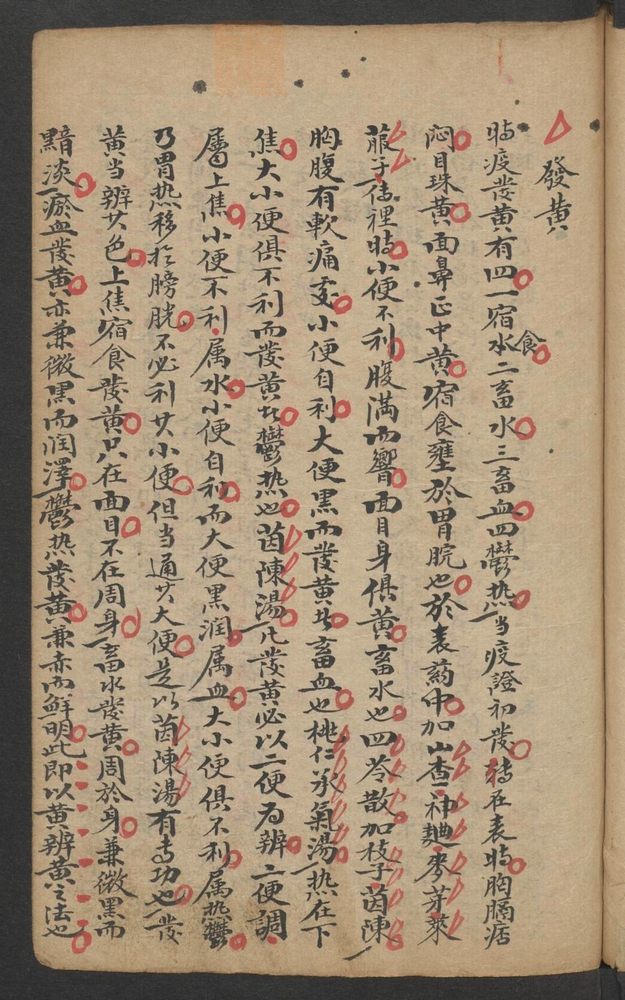 發黃
時疫發黃有四一宿食水二畜水三畜血四鬱热当疫證初發轉在表時胸膈痞
闷目珠黃面鼻正中黃宿食壅於胃脘也於表葯中加山查神麯麥芽萊
菔子傳裡時小便不利腹滿而響面目身俱黃畜水也四苓散加枝子茵陳
胸腹有軟痛䖏小便自利大便黑而發黃者畜血也桃仁承氣湯热在下
焦大小便俱不利而發黃者鬱热也茵陳湯凡發黃必以二便为辨二便調
屬上焦小便不利属水小便自利而大便黑润属血大小便俱不利属热鬱
乃胃热移於膀胱不必利其小便但当通其大便是以茵陳湯有專功也發
黃当辨其色上焦宿食發黃只在面目不在周身畜水發黃周於身兼微黑而
黯淡瘀血發黃亦兼微黑而润澤鬱热發黃兼赤而鮮明此即以黃辨黃之法也